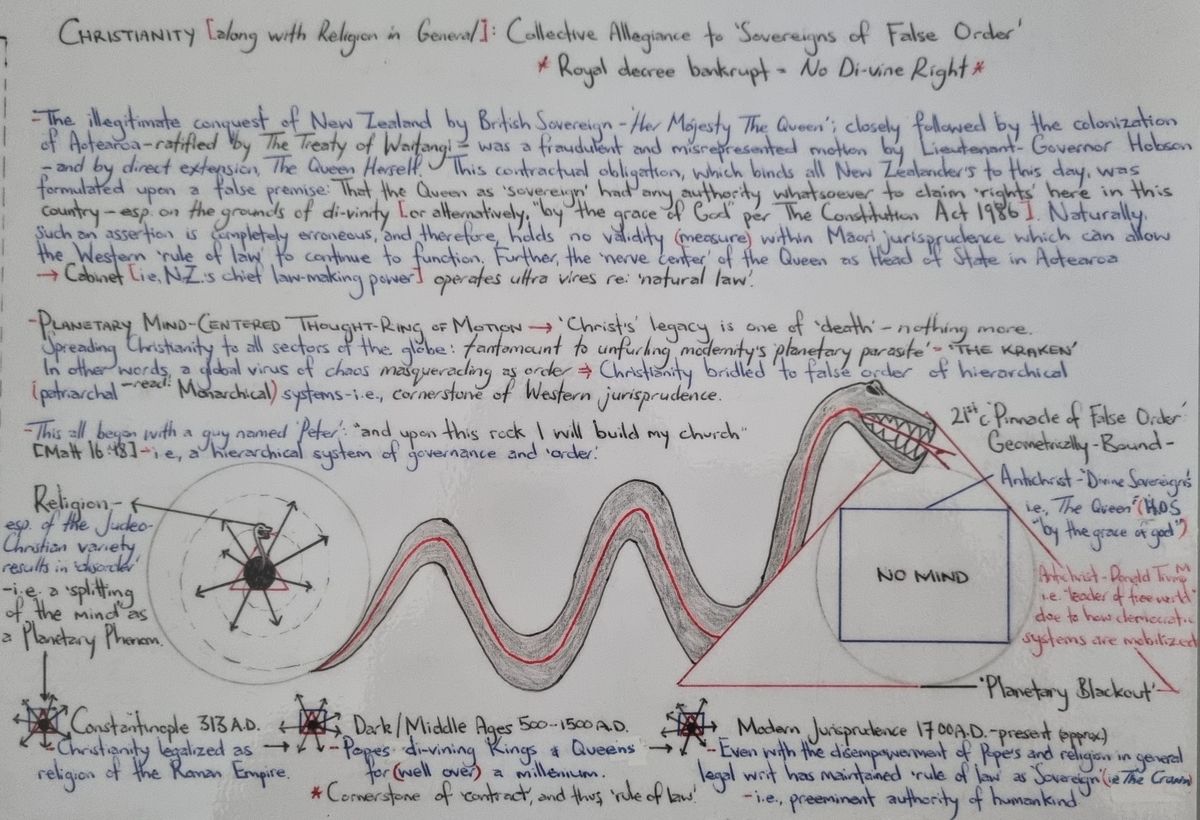 CHRISTIANITY [along with Religion in General]: Collective Allegiance to 'Sovereigns of False Order'
* Royal decree bankrupt = No Di-vine Right *
-The illegitimate conquest of New Zealand by British Sovereign - 'Her Majesty The Queen'; closely followed by the colonization
of Aotearoa-ratified by The Treaty of Waitangi - was a fraudulent and misrepresented motion by Lieutenant-Governor Hobson
- and by direct extension, The Queen Herself. This contractual obligation, which binds all New Zealander's to this day, was
formulated upon a false premise: That the Queen as 'sovereign' had any authority whatsoever to claim 'rights' here in this
country - esp. on the grounds of di-vinity [or alternatively, "by the grace of God" per The Constitution Act 1986]. Naturally,
such an assertion is completely erroneous, and therefore, holds no validity (measure) within Maori jurisprudence which can allow
the Western 'rule of law' to continue to function. Further, the 'nerve center' of the Queen as Head of State in Aotearoa
→ Cabinet [i.e, N.Z.'s chief law-making power] operates ultra vires re: 'natural law'.
-PLANETARY MIND-CENTERED THOUGHT-RING OF MOTION → 'Christ's' legacy is one of 'death' - nothing more.
Spreading Christianity to all sectors of the globe: tantamount to unfurling modernity's 'planetary parasite' = 'THE KRAKEN'
In other words, a global virus of chaos masquerading as order ⇒ Christianity bridled to false order of hierarchical
(patriarchal - read: Monarchical) systems - i.e., cornerstone of Western jurisprudence.
-This all began with a guy named 'Peter': "and upon this rock I will build my church"
[Matt 16:18] - i.e, a hierarchical system of governance and 'order.'
21st c 'Pinnacle of False Order'
Geometrically-Bound-
Antichrist - 'Divine Sovereigns'
i.e., The Queen (H.O.S
"by the grace of god")
Religion-
esp. of the Judeo-
Christian variety
results in 'disorder'
-i.e. a 'splitting
of the mind' as
a Planetary Phenom.
NO MIND
Antichrist - Donald Trump
i.e. 'leader of free world'
due to how democratic
systems are mobilized
'Planetary Blackout'
Constantinople 313 A.D.
- Christianity legalized as
religion of the Roman Empire.
Dark/Middle Ages 500-1500 A.D.
- Popes di-vining Kings & Queens
for (well over) a millenium.
* Cornerstone of 'contract', and thus, 'rule of law.'
Modern Jurisprudence 1700A.D.-present (approx)
- Even with the disempowerment of Popes and religion in general
legal writ has maintained 'rule of law' as Sovereign (ie The Crown)
- i.e., preeminent authority of humankind